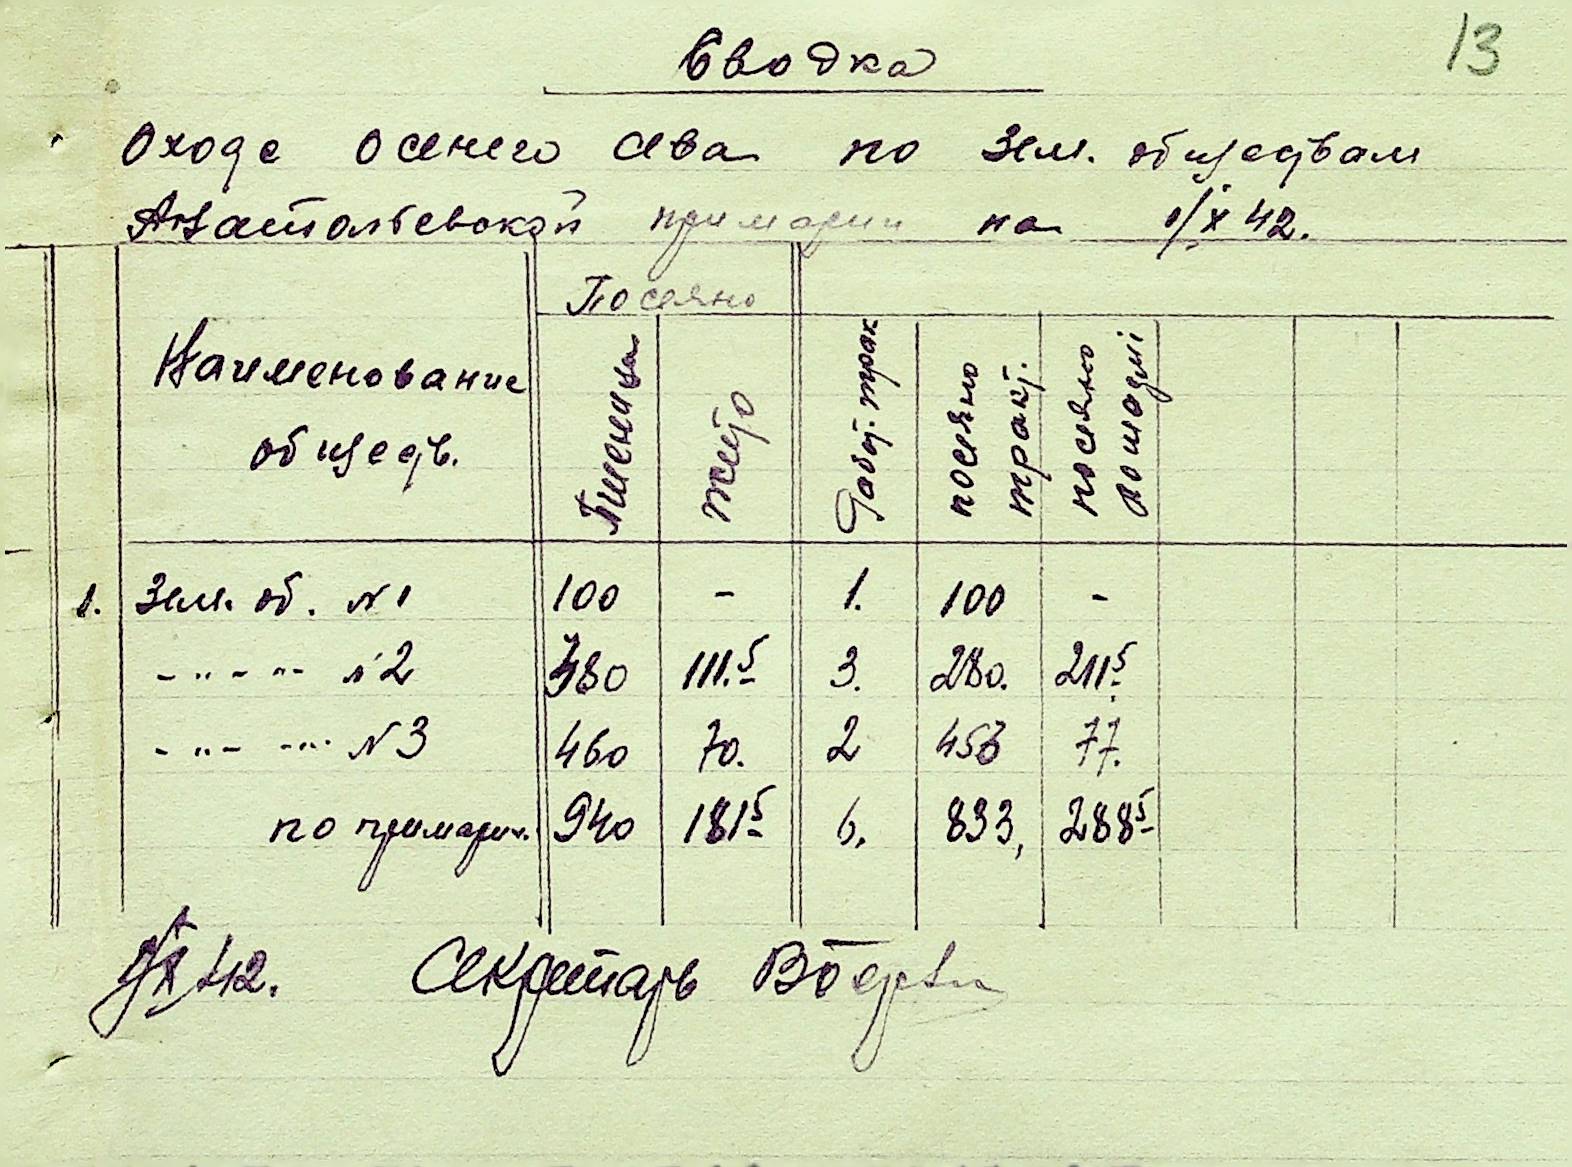 13
Сводка
Оходе осенего сева по Зем. обществам
Анатольевской примарии на 1/X 42.
Наименование обществ.
Посеяно
Пшеница
жито
Работ. трак
посеяно тракт.
посеяно лошадмі
1. Зем. об. N 1 100 - 1. 100 -
- " - " - N 2 380 111.5 3. 280. 211.5
- " - " - N 3 460 70. 2 453 77.
по примарии. 940 181.5 6. 833, 288.5
X 42. Секретарь